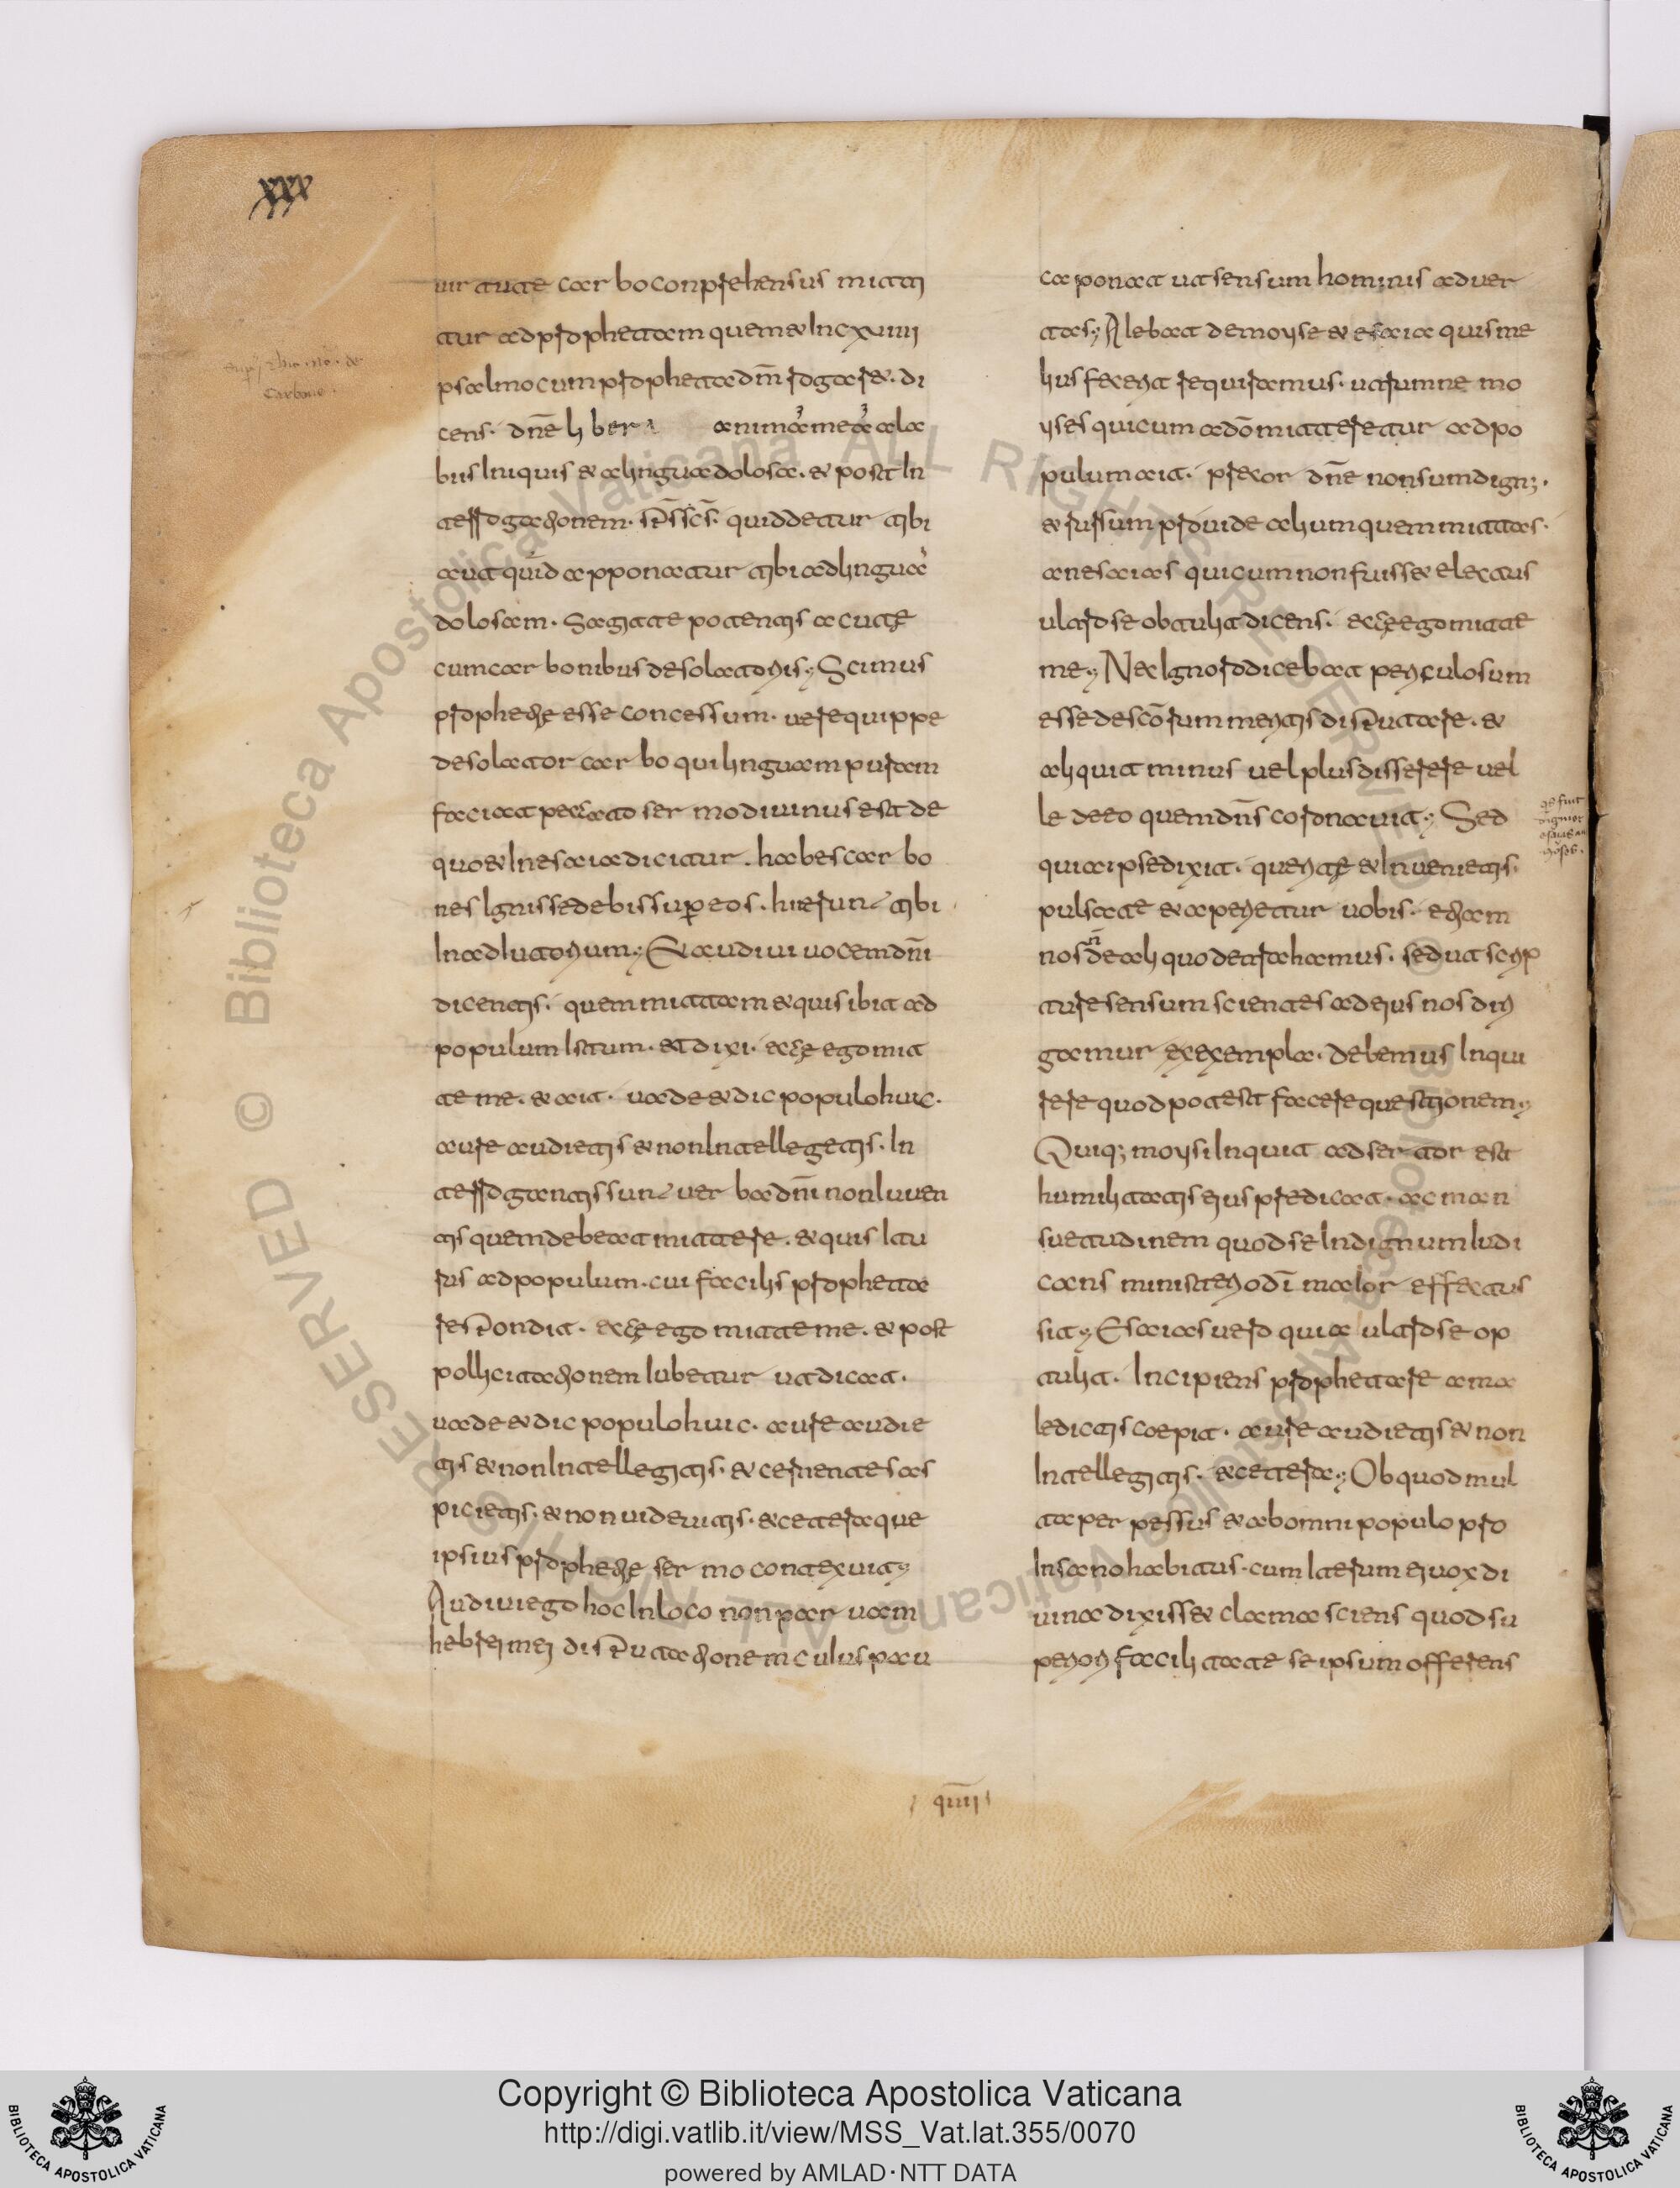 xxx
uirtute carbo conprehensus mitti
tur ad prophetam quem et in cxuiiii
psalmo cum propheta dm̄ rogaret. di
cens. dnē liber animā meā a la
biis iniquis et a lingua dolosa. et post in
terrogationem. sp̄s sc̄s. quid detur tibi
aut quid apponatur tibi ad linguā
dolosam. Sagitte potentis acutę
cum carbonibus desolatoriis; Scimus
prophetię esse concessum. uere quippe
desolator carbo qui linguam puram
faciat peccato sermo diuinus est de
quo et in esaia dicitur. habes carbo
nes ignis sedebis super eos. hii erunt tibi
in adiutorium; Et audiui uocem dn̄i
dicentis. quem mittam et quis ibit ad
populum istum. et dixi. eccę ego mit
te me. et ait. uade et dic populo huic.
aure audietis et non intellegetis. In
terrogantis sunt uerba dn̄i non iuben
tis quem debeat mittere. et quis itu
rus ad populum. cui facilis propheta
resp̄ondit. eccę ego mitte me. et post
pollicitationem iubetur ut dicat.
uade et dic populo huic. aure audie
tis et non intellegitis. et cernentes as
picietis. et non uidebitis. et cetera que
ipsius prophetię sermo contexuit;
Audiui ego hoc in loco non paruam
hebrei mei disp̄utationem cuius pau
ca ponam ut sensum hominis aduer
tas; Aiebat de moyse et esaia quis me
lius fecerit requiramus. utrumne mo
yses qui cum a dō mitteretur ad po
pulum ait. precor dnē non sum dign;.
et rursum prouide alium quem mittas.
an esaias qui cum non fuisset electus
ultro se obtulit dicens. eccę ego mitte
me; Nec ignoro dicebat periculosum
esse de scōrum meritis disp̄utare. et
aliquit minus uel plus disserere uel
le de eo quem dn̄s coronauit; Sed
quia ipse dixit. queritę et inuenietis.
pulsate et aperietur uobis. etiam
nos n̄ de aliquo detrahamus. sed ut scrip
ture sensum scientes ad eius nos diri
gamur exempla. debemus inqui
rere quod potest facere questionem;
Quiq; moysi inquit adsertor est
humilitatis eius predicat ac man
suetudinem quod se indignum iudi
cans ministerio dī maior effectus
sit; Esaias uero quia ultro se op
tulit. Incipiens prophetare a ma
ledictis coepit. aure audietis et non
intellegitis. et cetera; Ob quod mul
ta perpessus et ab omni populo pro
insano habitus. cum iterum ei uox di
uina dixisset clama sciens quod su
periori facilitate se ipsum offerens
qiiii